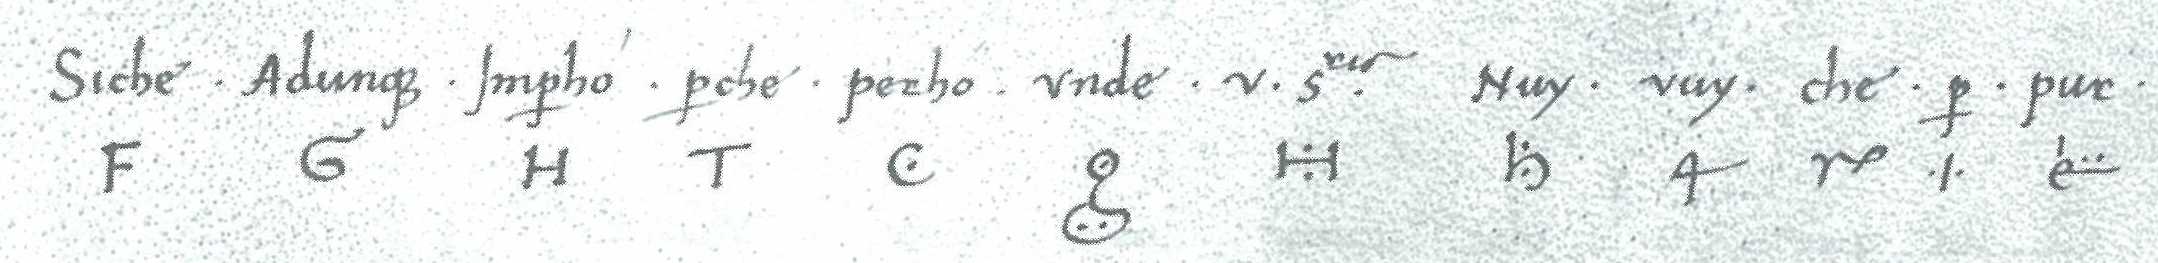 Siche · Adunq; · Impho · pche · percho · vnde · v. s. · Nuy · vuy · che · p · pur ·
F G H T C H 4 · 1 ·